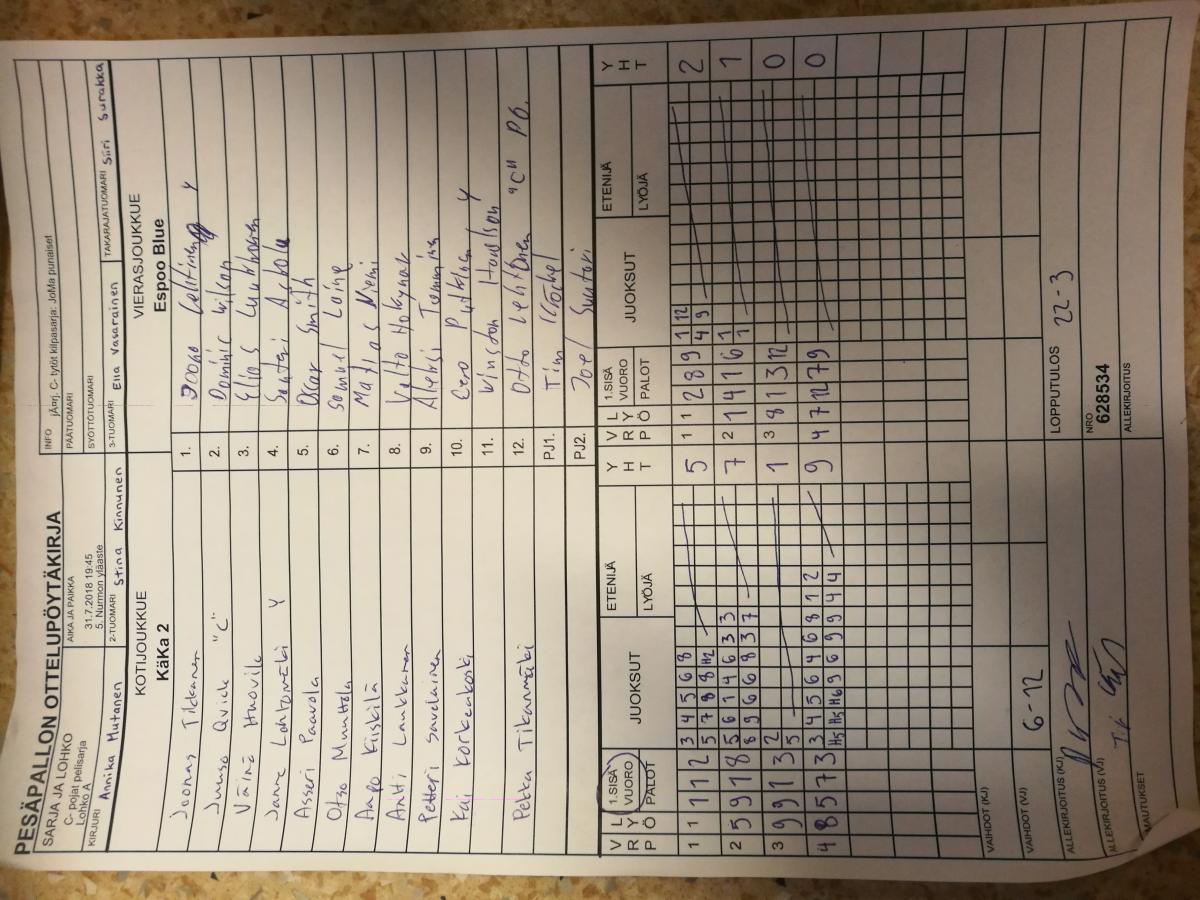 PESÄPALLON OTTELUPÖYTÄKIRJA
SARJA JA LOHKO
C- pojat pelisarja
Lohko A
AIKA JA PAIKKA
31.7.2018 19:45
5. Nurmon yläaste
INFO jÄrj. C-tytöt kilpasarja: JoMa punaiset
PÄÄTUOMARI
SYÖTTÖTUOMARI
KIRJURI Annika Mutanen
2-TUOMARI Stina Kinnunen
3-TUOMARI Ella Vasarainen
TAKARAJATUOMARI Siiri Surakka
KOTIJOUKKUE
KäKa 2
VIERASJOUKKUE
Espoo Blue
Joonas Tikkanen 1.
Juuso Qvick "C" 2. Dominic Wilson
Väinö Huovila 3. Elias
Janne Y 4. Santeri
Asseri Paavola 5. Oscar Smith
Otso Munttola 6. Samuel Laine
Aapo Kiiskilä 7. Matias Niemi
Antti Laukkanen 8.
Petteri Savolainen 9. Aleksi Tamminen
Kai Korkeakoski 10. Eero Pitkänen Y
11. Kingston Houlson
Pekka Tikanmäki 12. Otto Lehtonen "C" PÖ.
PJ1. Tim
PJ2. Joel Suutari
V R P L Y Ö 1.SISÄ VUORO PALOT JUOKSUT ETENIJÄ LYÖJÄ Y H T
V R P L Y Ö 1.SISÄ VUORO PALOT JUOKSUT ETENIJÄ LYÖJÄ Y H T
1 1 1 1 2 3 4 5 6 8 5
5 7 8 8 H2
1 1 2 8 9 1 12 2
4 9
2 5 9 1 8 5 6 1 4 6 3 3 7
8 9 6 6 8 3 7
2 1 4 1 6 1 1
1
3 9 9 1 3 2 1
5
3 8 1 3 12 0
4 8 5 7 3 3 4 5 6 4 6 8 1 2 9
H5 H5 H6 9 6 9 9 4 4
4 7 12 7 9 0
VAIHDOT (KJ)
VAIHDOT (VJ)
6-12
LOPPUTULOS 22-3
ALLEKIRJOITUS (KJ)
NRO
628534
ALLEKIRJOITUS (VJ)
ALLEKIRJOITUS